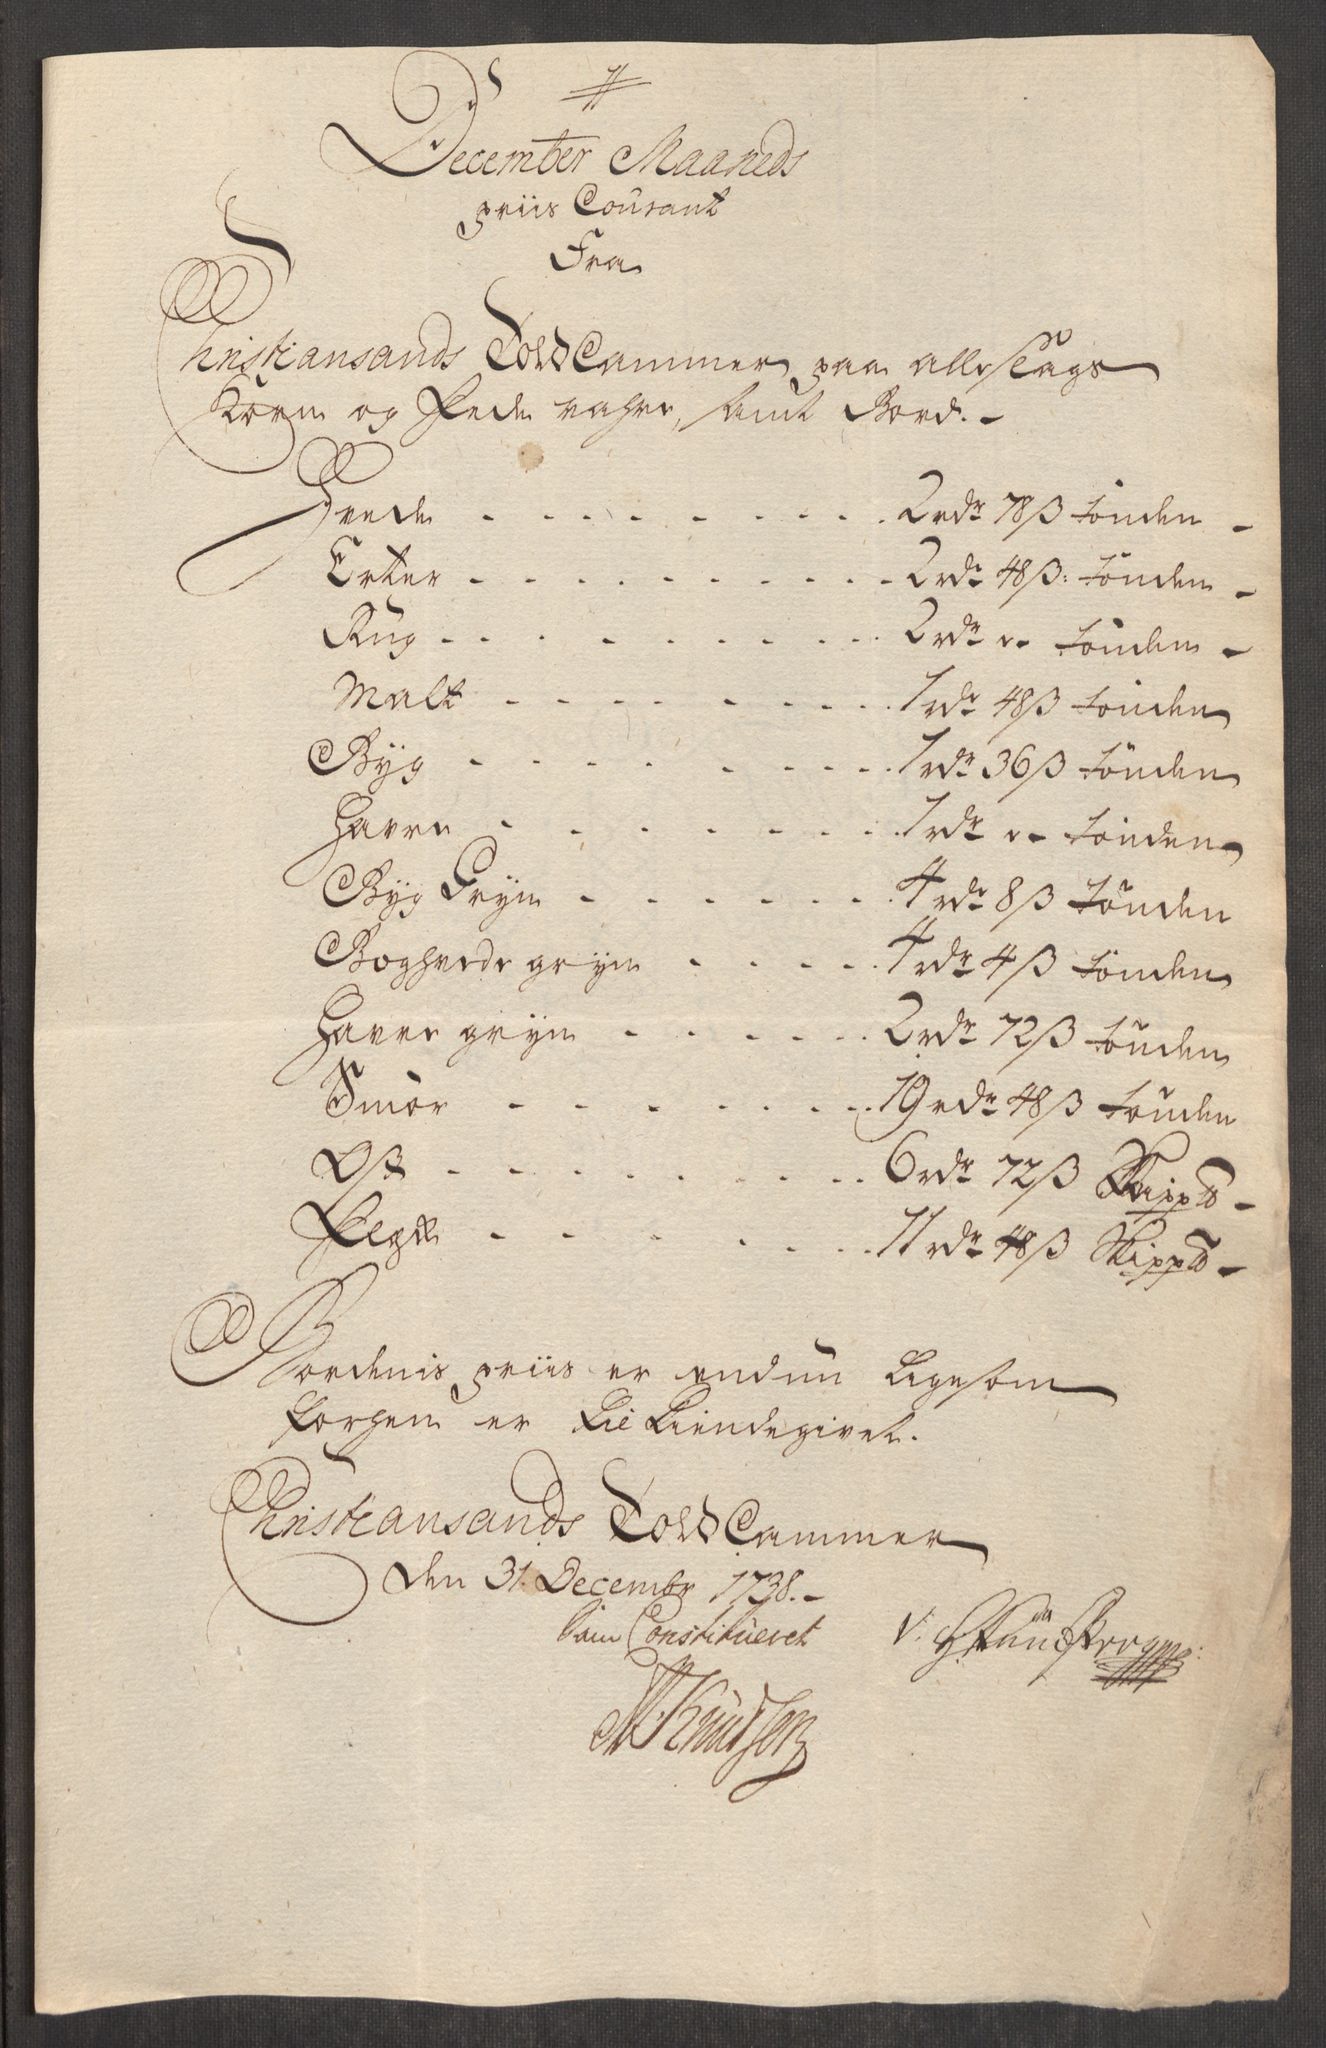 December Maaneds
priis Courant
Fra
Christiansands Told Cammer, paa alle slags
Korn og fede vahre, samt Bord.
Hvede - - - - - - - - 2 rdr 78 ß tönden -
Erter - - - - - - - - 2 rdr 48 ß: tönden -
Rug - - - - - - - - 2 rdr " - tönden -
Malt - - - - - - - 1 rdr 48 ß tönden
Byg - - - - - - - 1 rdr 36 ß tönden
Havre - - - - - - - 1 rdr " - tönden
Byg Gryn - - - - - - 4 rdr 8 ß tönden
Boghvede gryn - - - - 4 rdr 4 ß tönden
Havre gryn - - - - - 2 rdr 72 ß tönden
Smör - - - - - - - 19 rdr 48 ß tönden
Ost - - - - - - - - 6 rdr 72 ß Skippd -
Flesk - - - - - - - 11 rdr 48 ß Skippd -
Bordenis priis er endnu ligesom
forhen er tilkiendegivet.
Christiansands Told Cammer
den 31. Decembr 1738. -
Som Constitueret
Knudsen